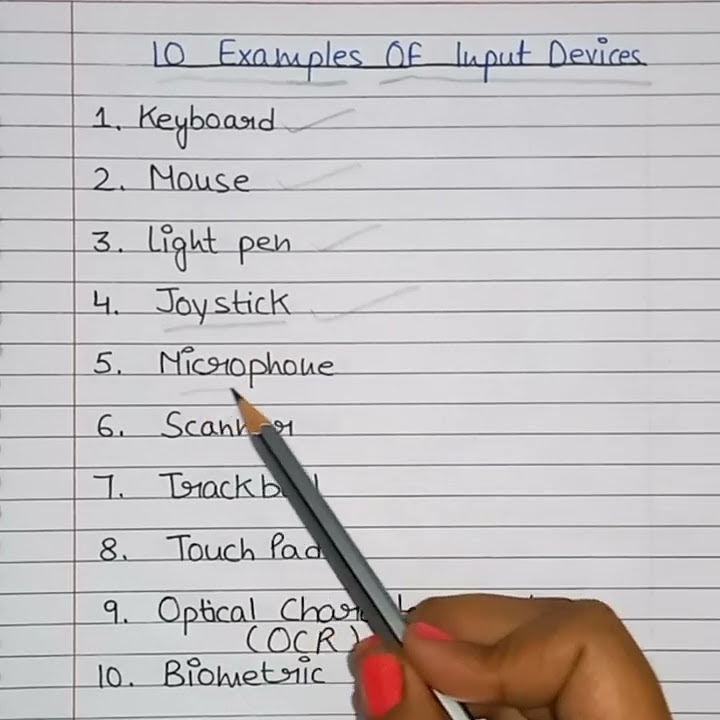 10 Examples OF Input Devices
1. Keyboard
2. Mouse
3. Light pen
4. Joystick
5. Microphone
6. Scanner
7. Trackball
8. Touch Pad
9. Optical
(OCR)
10. Biometric